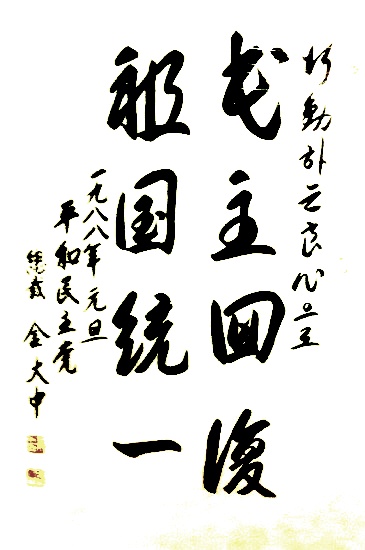 行動하는良心으로
民主回復
祖国統一
一九八八年 元旦
平和民主党
總裁 金大中